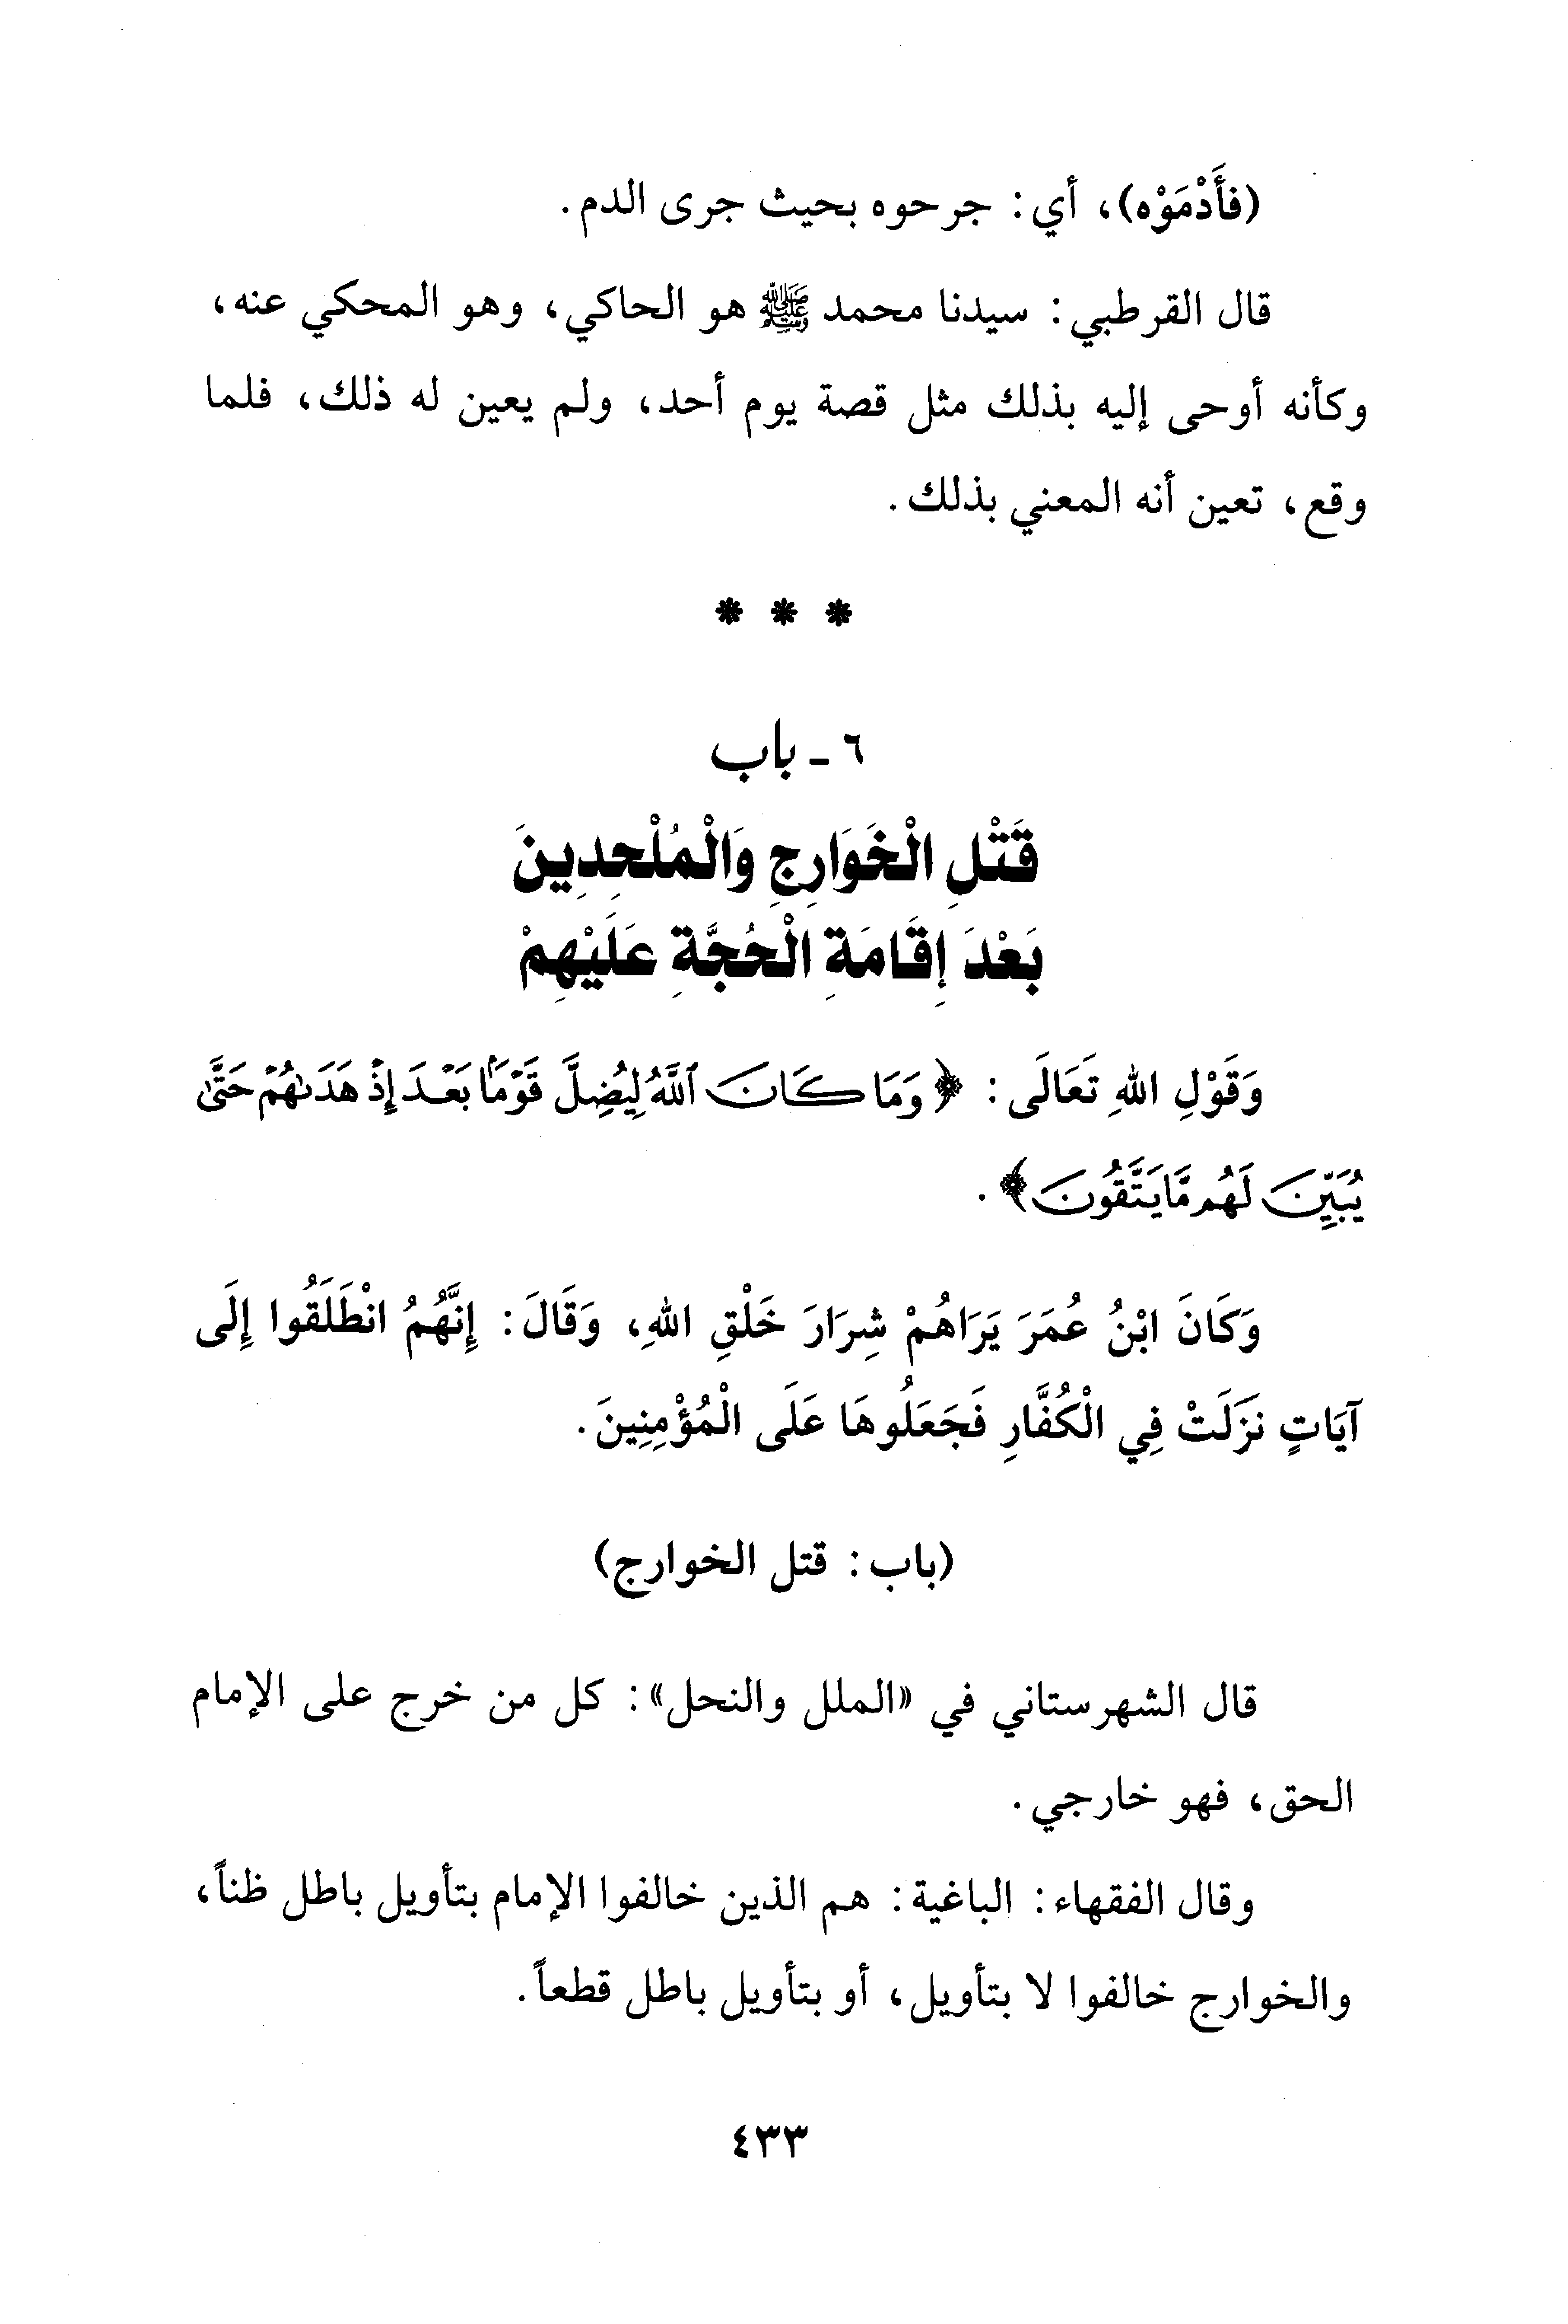 (فأَدْمَوْه)، أي: جرحوه بحيث جرى الدم.
قال القرطبي: سيدنا محمد ﷺ هو الحاكي، وهو المحكي عنه،
وكأنه أوحى إليه بذلك مثل قصة يوم أحد، ولم يعين له ذلك، فلما
وقع، تعين أنه المعني بذلك.
* * *
٦ - باب
قَتْلِ الْخَوَارِجِ وَالْمُلْحِدِينَ
بَعْدَ إِقَامَةِ الْحُجَّةِ عَلَيْهِمْ
وَقَوْلِ اللهِ تَعَالَى: ﴿وَمَا كَانَ ٱللَّهُ لِيُضِلَّ قَوْمًۢا بَعْدَ إِذْ هَدَىٰهُمْ حَتَّىٰ
يُبَيِّنَ لَهُم مَّا يَتَّقُونَ﴾.
وَكَانَ ابْنُ عُمَرَ يَرَاهُمْ شِرَارَ خَلْقِ اللهِ، وَقَالَ: إِنَّهُمُ انْطَلَقُوا إِلَى
آيَاتٍ نَزَلَتْ فِي الْكُفَّارِ فَجَعَلُوهَا عَلَى الْمُؤْمِنِينَ.
(باب: قتل الخوارج)
قال الشهرستاني في «الملل والنحل»: كل من خرج على الإمام
الحق، فهو خارجي.
وقال الفقهاء: الباغية: هم الذين خالفوا الإمام بتأويل باطل ظناً،
والخوارج خالفوا لا بتأويل، أو بتأويل باطل قطعاً.
٤٣٣